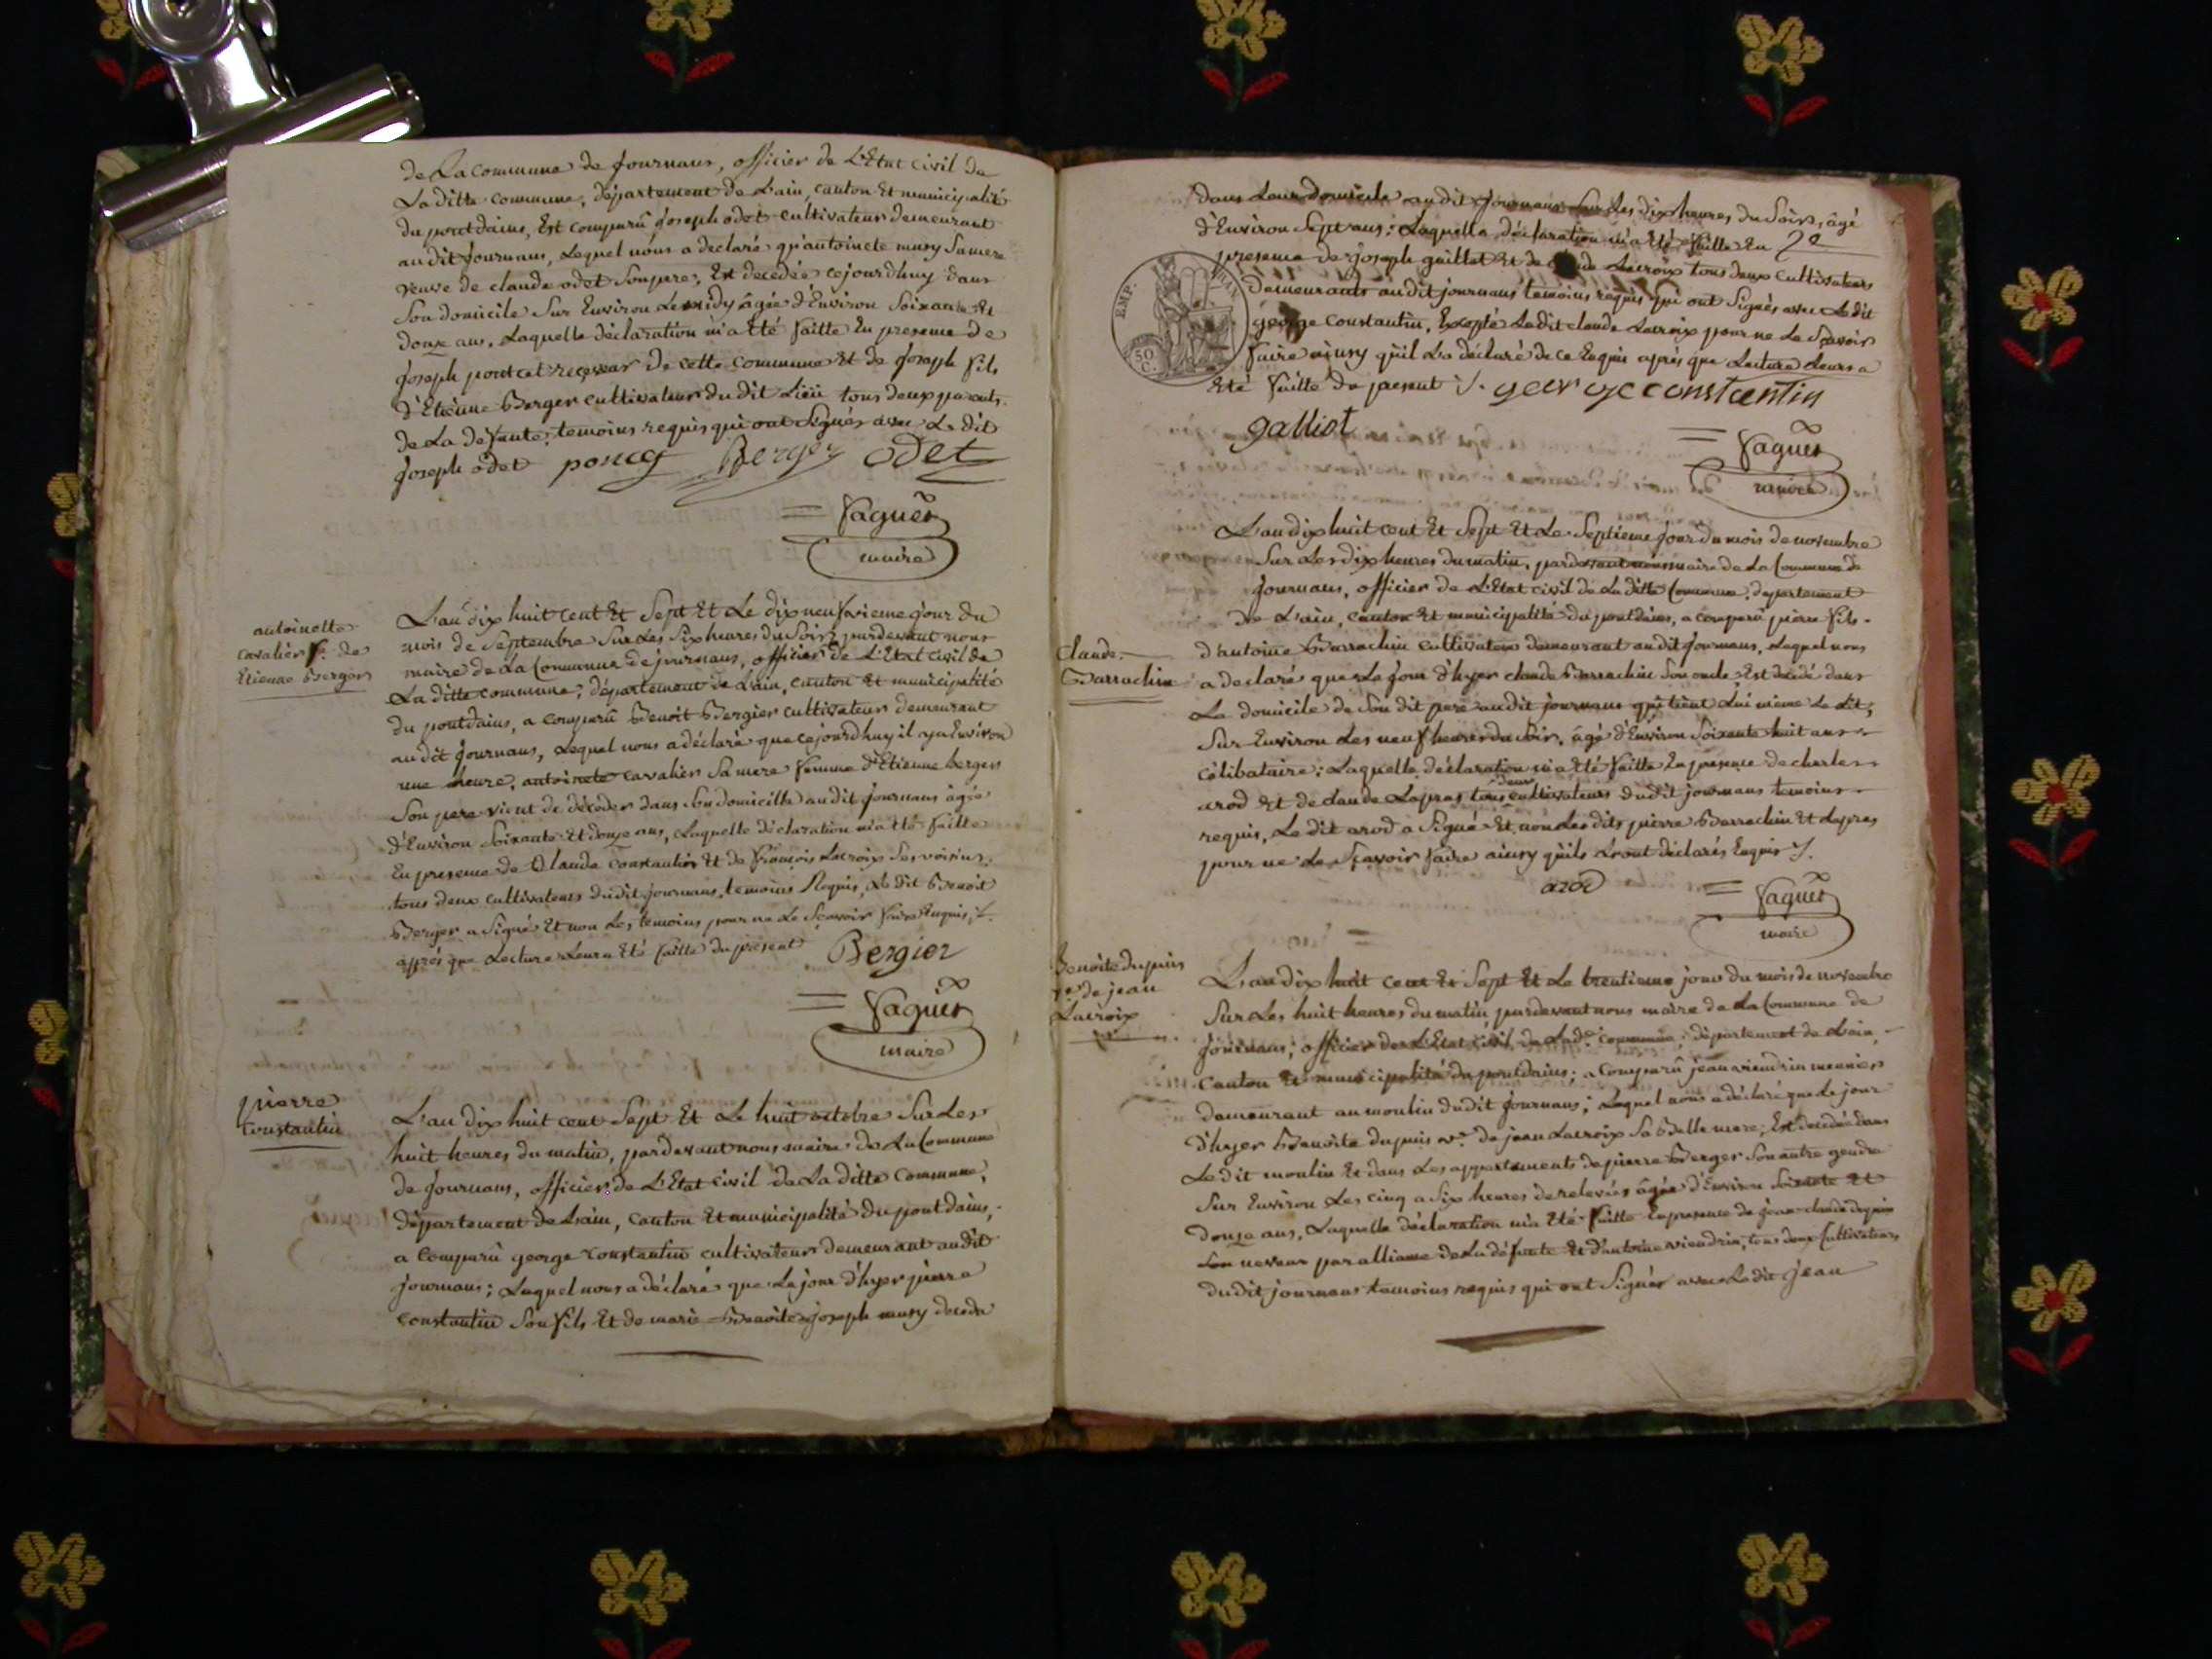 de La commune de Journans, officier de L'Etat civil de
La ditte commune, département de L'ain, canton Et municipalité
du pontdains, Est comparû Joseph odet cultivateur demeurant
au dit Journans, Lequel nous a declaré qu'antoinete musy Sa mere
veuve de claude odet Son pere, Est decedée cejourdhuy dans
Son domicile Sur Environ Le midy âgée d'Environ Soixante Et
douze ans, Laquelle déclaration m'a Eté faitte En presence de
Joseph poncet receveur de cette commune Et de Joseph fils
d'Etiènne Berger cultivateur du dit Lieü tous deux parents
de La defunte, temoins requis qui ont Signés avec Le dit
Joseph odet poncet Berger odet
Vaguer
maire
antoinette
cavalier fe. de
Etienne Berger
L'an dix huit cent Et Sept Et Le dix neufvieme Jour du
mois de Septembre Sur Les Six heures du Soir, pardevant nous
maire de La Commune de journans, officier de L'Etat civil de
La ditte commune, département de L'ain, canton Et municipalité
du pontdains, a comparû Benoit Bergier cultivateur demeurant
au dit Journans, Lequel nous a déclaré que cejourdhuy il y a Environ
une heure, antoinete cavalier Sa mere femme d'Etienne berger
Son pere vient de décéder dans Son domicille au dit Journans âgée
d'Environ Soixante Et douze ans, Laquelle déclaration m'a Eté faitte
En presence de Claude Constantin Et de François Lacroix Ses voisins,
tous deux cultivateurs dudit journans, temoins Requis, Le dit Benoit
Berger a Signé Et non Les temoins pour ne Le Sçavoir faire Enquis,
après que Lecture Leur a Eté faitte du présent Bergier
Vaguer
maire
pierre
Constantin
L'an dix huit cent Sept Et Le huit octobre Sur Les
huit heures du matin, pardevant nous maire de La Commune
de Journans, officier de L'Etat civil de La ditte Commune,
département de Lain, canton Et municipalité du pont dains,
a Comparû george Constantin cultivateur demeurant au dit
Journans; Laquel nous a déclaré que Le jour d'hyer pierre
constantin Son fils Et de marie Benoite Joseph musy deceda
dans Leur domicile au dit Journans Sur Les dix heures du Soir, âgé
d'Environ Sept ans; Laquelle déclaration m'a Eté faitte En
presence de Joseph guillot Et de Lacroix tous deux Cultivateurs
demeurants au dit journans temoins requis qui ont Signés avec Le dit
george Constantin, Excepté Le dit claude Lacroix pour ne Le Sçavoir
faire ainsy qu'il L'a déclaré de ce Enquis après que Lecture Leur a
Eté faitte du present george constantin
EMP.
50
C.
galliot
Vaguer
maire
L'an dix huit cent Et Sept Et Le Septieme jour du mois de novembre
Sur Les dix heures du matin, pardevant nous maire de La Commune de
Journans, officier de L'Etat civil de La ditte Commune, departement
de L'ain, canton Et municipalité du pontdains, a comparû pierre fils
Claude
Barrachin
d'antoine Barrachin cultivateur demeurant au dit Journans, Lequel nous
a declaré que Le Jour d'hyer claude Barrachin Son oncle Est décédé dans
Le domicile de Son dit pere au dit journans qu'il tient Lui meme Le dit,
Sur Environ Les neuf heures du Soir, âgé d'Environ Soixante huit ans
célibataire; Laquelle déclaration m'a Eté faitte En presence de charles
arod Et de claude Lapras tous deux cultivateurs dudit journans temoins
requis, Le dit arod a Signé Et non Les dits pierre Barrachin Et Lapras
pour ne Le Sçavoir faire ainsy qu'ils L'ont déclarés Enquis
arod
Vaguer
maire
Benoite dupuis
ve. de jean
Lacroix
L'an dix huit cent Et Sept Et Le trentieme jour du mois de novembre
Sur Les huit heures du matin, pardevant nous maire de La Commune de
Journans, officier de L'Etat civil de Lad.e commune, département de Lain,
Canton Et municipalité du pontdains; a Comparû jean viendrin meunier
demeurant au moulin dudit Journans; Lequel nous a déclaré que Le jour
d'hyer Benoite dupuis ve. de jean Lacroix Sa Belle mere, Est decedée dans
Le dit moulin Et dans Les appartements de pierre Berger Son autre gendre
Sur Environ Les cinq a Six heures de relevée, âgée d'Environ Soixante Et
douze ans, Laquelle déclaration m'a Eté faitte En presence de jean claude dupuis
Son neveux par alliance de La défunte Et d'antoine viendrin, tous deux Cultivateurs
dudit journans temoins requis qui ont Signés avec Le dit jean